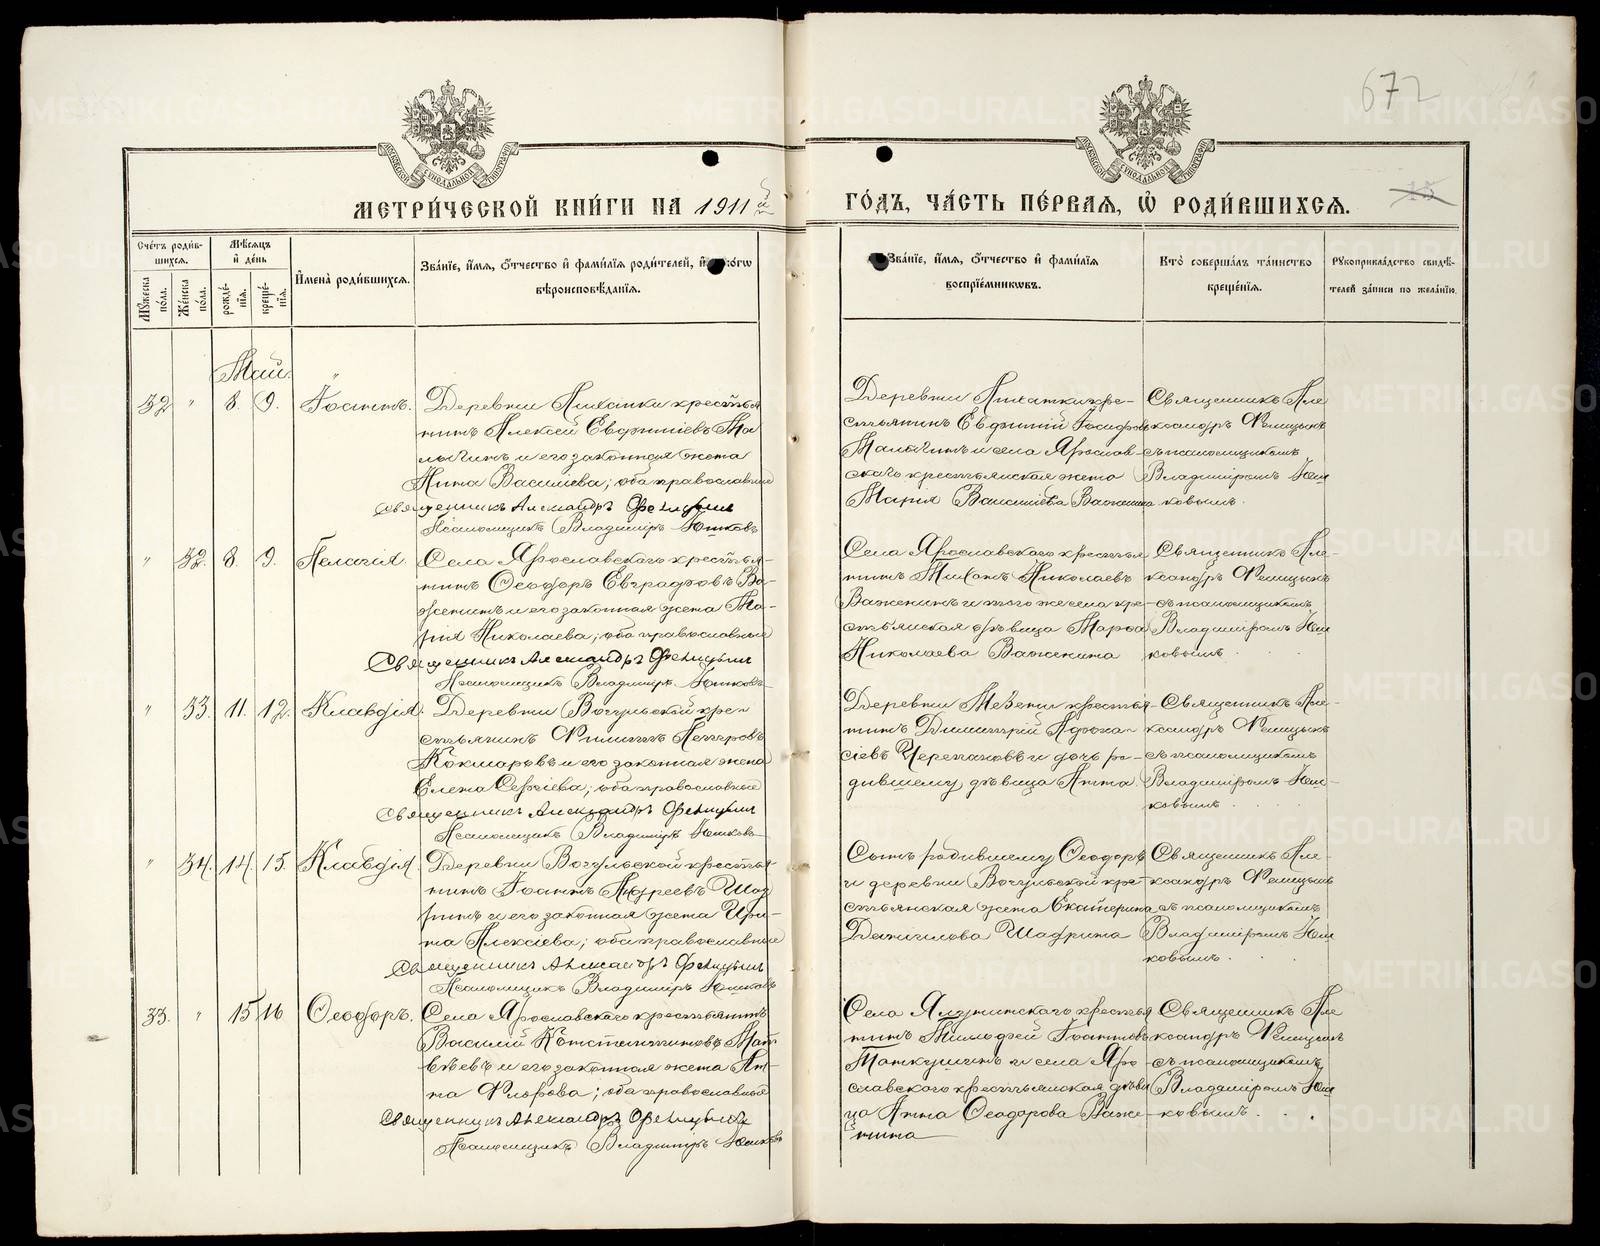 672
МЕТРИ́ЧЕСКОЙ КНИ́ГИ НА 1911й ГО́ДЪ, ЧА́СТЬ ПЕ́РВАЯ, Ѡ РОДИ́ВШИХСЯ.
15
Сче́тъ роди́вшихся.
Мѣ́сяцъ и҆ де́нь
Мꙋ́жеска по́ла.
Же́нска по́ла.
рожде́нїя.
креще́нїя.
И҆мена̀ роди́вшихся.
Зва́нїе, и҆́мя, ѻ҆́тчество и҆ фами́лїя роди́телей, и҆ како́гѡ
вѣроисповѣ́данїя.
Зва́нїе, и҆́мя, ѻ҆́тчество и҆ фами́лїя
воспрїе́мникѡвъ.
Кто̀ соверша́лъ та́инство
креще́нїя.
Рꙋкоприкла́дство свидѣ́-
телей за́писи по жела́нїю.
Май.
32 " 8. 9. Іоаннъ.
Деревни
крестья
нинъ Алексей Евфиміевъ Ма
лыгинъ и его законная жена
Нина Василіева; оба православные
Священникъ Александръ Феницынъ
Псаломщикъ Владиміръ Юшковъ
Деревни
кре-
стьянинъ Евфимій
Малыгинъ и села Ярослав-
скаго крестьянская жена
Марія Василіева Важенина
Священникъ Але
ксандръ Феницынъ
съ псаломщикомъ
Владиміромъ Юш
ковымъ.
" 32. 8. 9. Пелагія.
Села Ярославскаго крестья-
нинъ Ѳеодоръ Евграфовъ Ва-
женинъ и его законная жена Ма-
рія Николаева; оба православные
Священникъ Александръ Феницынъ
Псаломщикъ Владиміръ Юшковъ
Села Ярославскаго крестья
нинъ Николаевъ
Важенинъ и того же села кре-
стьянская дѣвица Марѳа
Николаева Важенина
Священникъ Але-
ксандръ Феницынъ
съ псаломщикомъ
Владиміромъ Юш
ковымъ.
" 33. 11. 12. Клавдія.
Деревни Вогульской кре-
стьянинъ Филиппъ Петровъ
Кокшаровъ и его законная жена
Елена Сергіева; оба православные
Священникъ Александръ Феницынъ
Псаломщикъ Владиміръ Юшковъ
Деревни Мезени крестья-
нинъ Димитрій Афона-
сіевъ Черепановъ и дочь ро-
дившему дѣвица Анна
Священникъ Але-
ксандръ Феницынъ
съ псаломщикомъ
Владиміромъ Юш-
ковымъ.
" 34. 14. 15. Клавдія.
Деревни Вогульской крестья-
нинъ Іоаннъ Андреевъ Шад
ринъ и его законная жена Ири-
на Алексіева; оба православные
Священникъ Александръ Феницынъ
Псаломщикъ Владиміръ Юшковъ
Сынъ родившему Ѳеодоръ
и деревни Вогульской кре-
стьянская жена Екатерина
Даніилова Шадрина
Священникъ Але-
ксандръ Феницынъ
съ псаломщикомъ
Владиміромъ Юш
ковымъ.
33. " 15 16 Ѳеодоръ.
Села Ярославскаго крестьянинъ
Василій Константиновъ Мат-
вѣевъ и его законная жена Ан-
на Флорова; оба православные
Священникъ Александръ Феницынъ
Псаломщикъ Владиміръ Юшковъ
Села Ялунинскаго крестья
нинъ Іоанновъ
и села Яро
славскаго крестьянская дѣви
ца Анна Ѳеодорова Важе-
нина
Священникъ Але
ксандръ Феницынъ
съ псаломщикомъ
Владиміромъ Юш
ковымъ.
METRIKI.GASO-URAL.RU